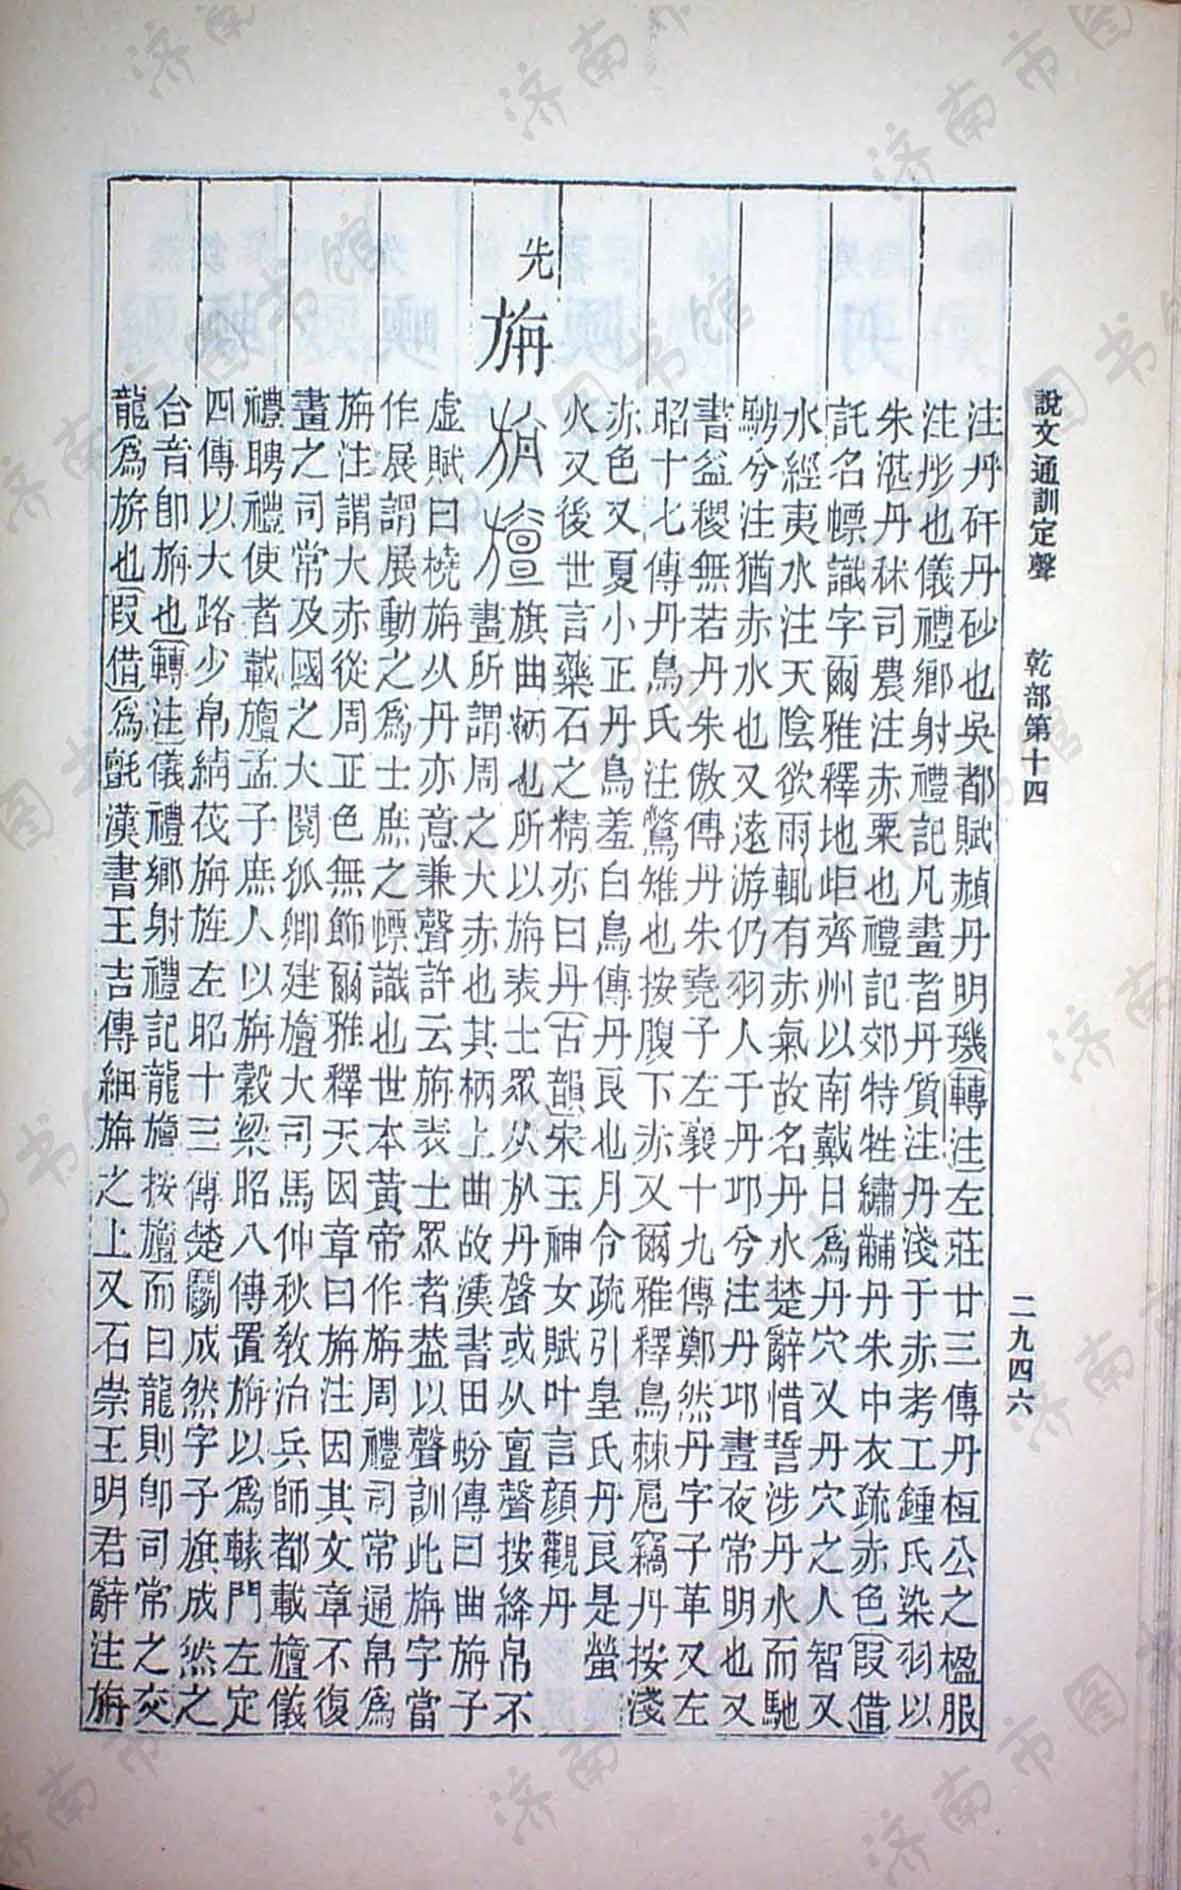 說文通訓定聲 乾部第十四 二九四六
注丹矸丹砂也吳都賦赬丹明璣轉注左莊廿三傳丹桓公之楹服
注彤也儀禮鄉射禮記凡畫者丹質注丹淺于赤考工鍾氏染羽以
朱湛丹秫司農注赤粟也禮記郊特牲繡黼丹朱中衣疏赤色叚借
託名幖識字爾雅釋地岠齊州以南戴日為丹穴又丹穴之人智又
水經夷水注天陰欲雨輒有赤氣故名丹水楚辭惜誓涉丹水而馳
騁兮注猶赤水也又遠游仍羽人于丹邱兮注丹邱晝夜常明也又
書益稷無若丹朱傲傳丹朱堯子左襄十九傳鄭然丹字子革又左
昭十七傳丹鳥氏注鷩雉也按腹下赤又爾雅釋鳥棘扈竊丹按淺
赤色又夏小正丹鳥羞白鳥傳丹良也月令疏引皇氏丹良是螢
火又後世言藥石之精亦曰丹古韻宋玉神女賦叶言顏觀丹
先
旃
旃 旜 旗曲柄也所以旃表士眾从㫃丹聲或从亶聲按絳帛不
畫所謂周之大赤也其柄上曲故漢書田蚡傳曰曲旃子
虛賦曰橈旃从丹亦意兼聲許云旃表士眾者葢以聲訓此旃字當
作展謂展動之為士庶之幖識也世本黃帝作旃周禮司常通帛為
旃注謂大赤從周正色無飾爾雅釋天因章曰旃注因其文章不復
畫之司常及國之大閱孤卿建旜大司馬仲秋教治兵師都載旜儀
禮聘禮使者載旜孟子庶人以旃穀梁昭八傳置旃以為轅門左定
四傳以大路少帛綪茷旃旌左昭十三傳楚鬬成然字子旗成然之
台音卽旃也轉注儀禮鄉射禮記龍旜按旜而曰龍則卽司常之交
龍為旂也叚借為氈漢書王吉傳細旃之上又石崇王明君辭注旃